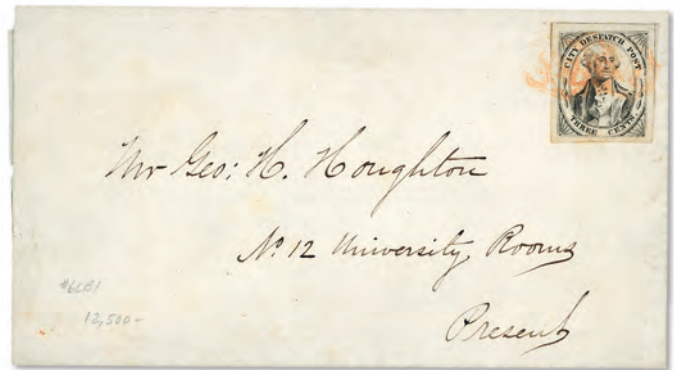 CITY DESPATCH POST
THREE CENTS.
Mr Geo: H. Houghton
No. 12 University Rooms
Present
#6LB1
12,500-